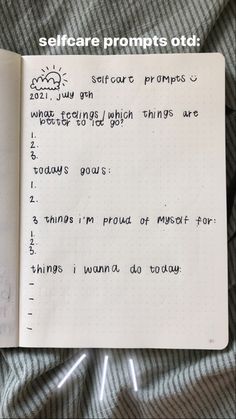 selfcare prompts otd:
selfcare prompts
2021, july 9th
what feelings/which things are
better to let go?
1.
2.
3.
todays goals:
1.
2.
3 things i'm proud of myself for:
1.
2.
3.
things i wanna do today:
-
-
-
-